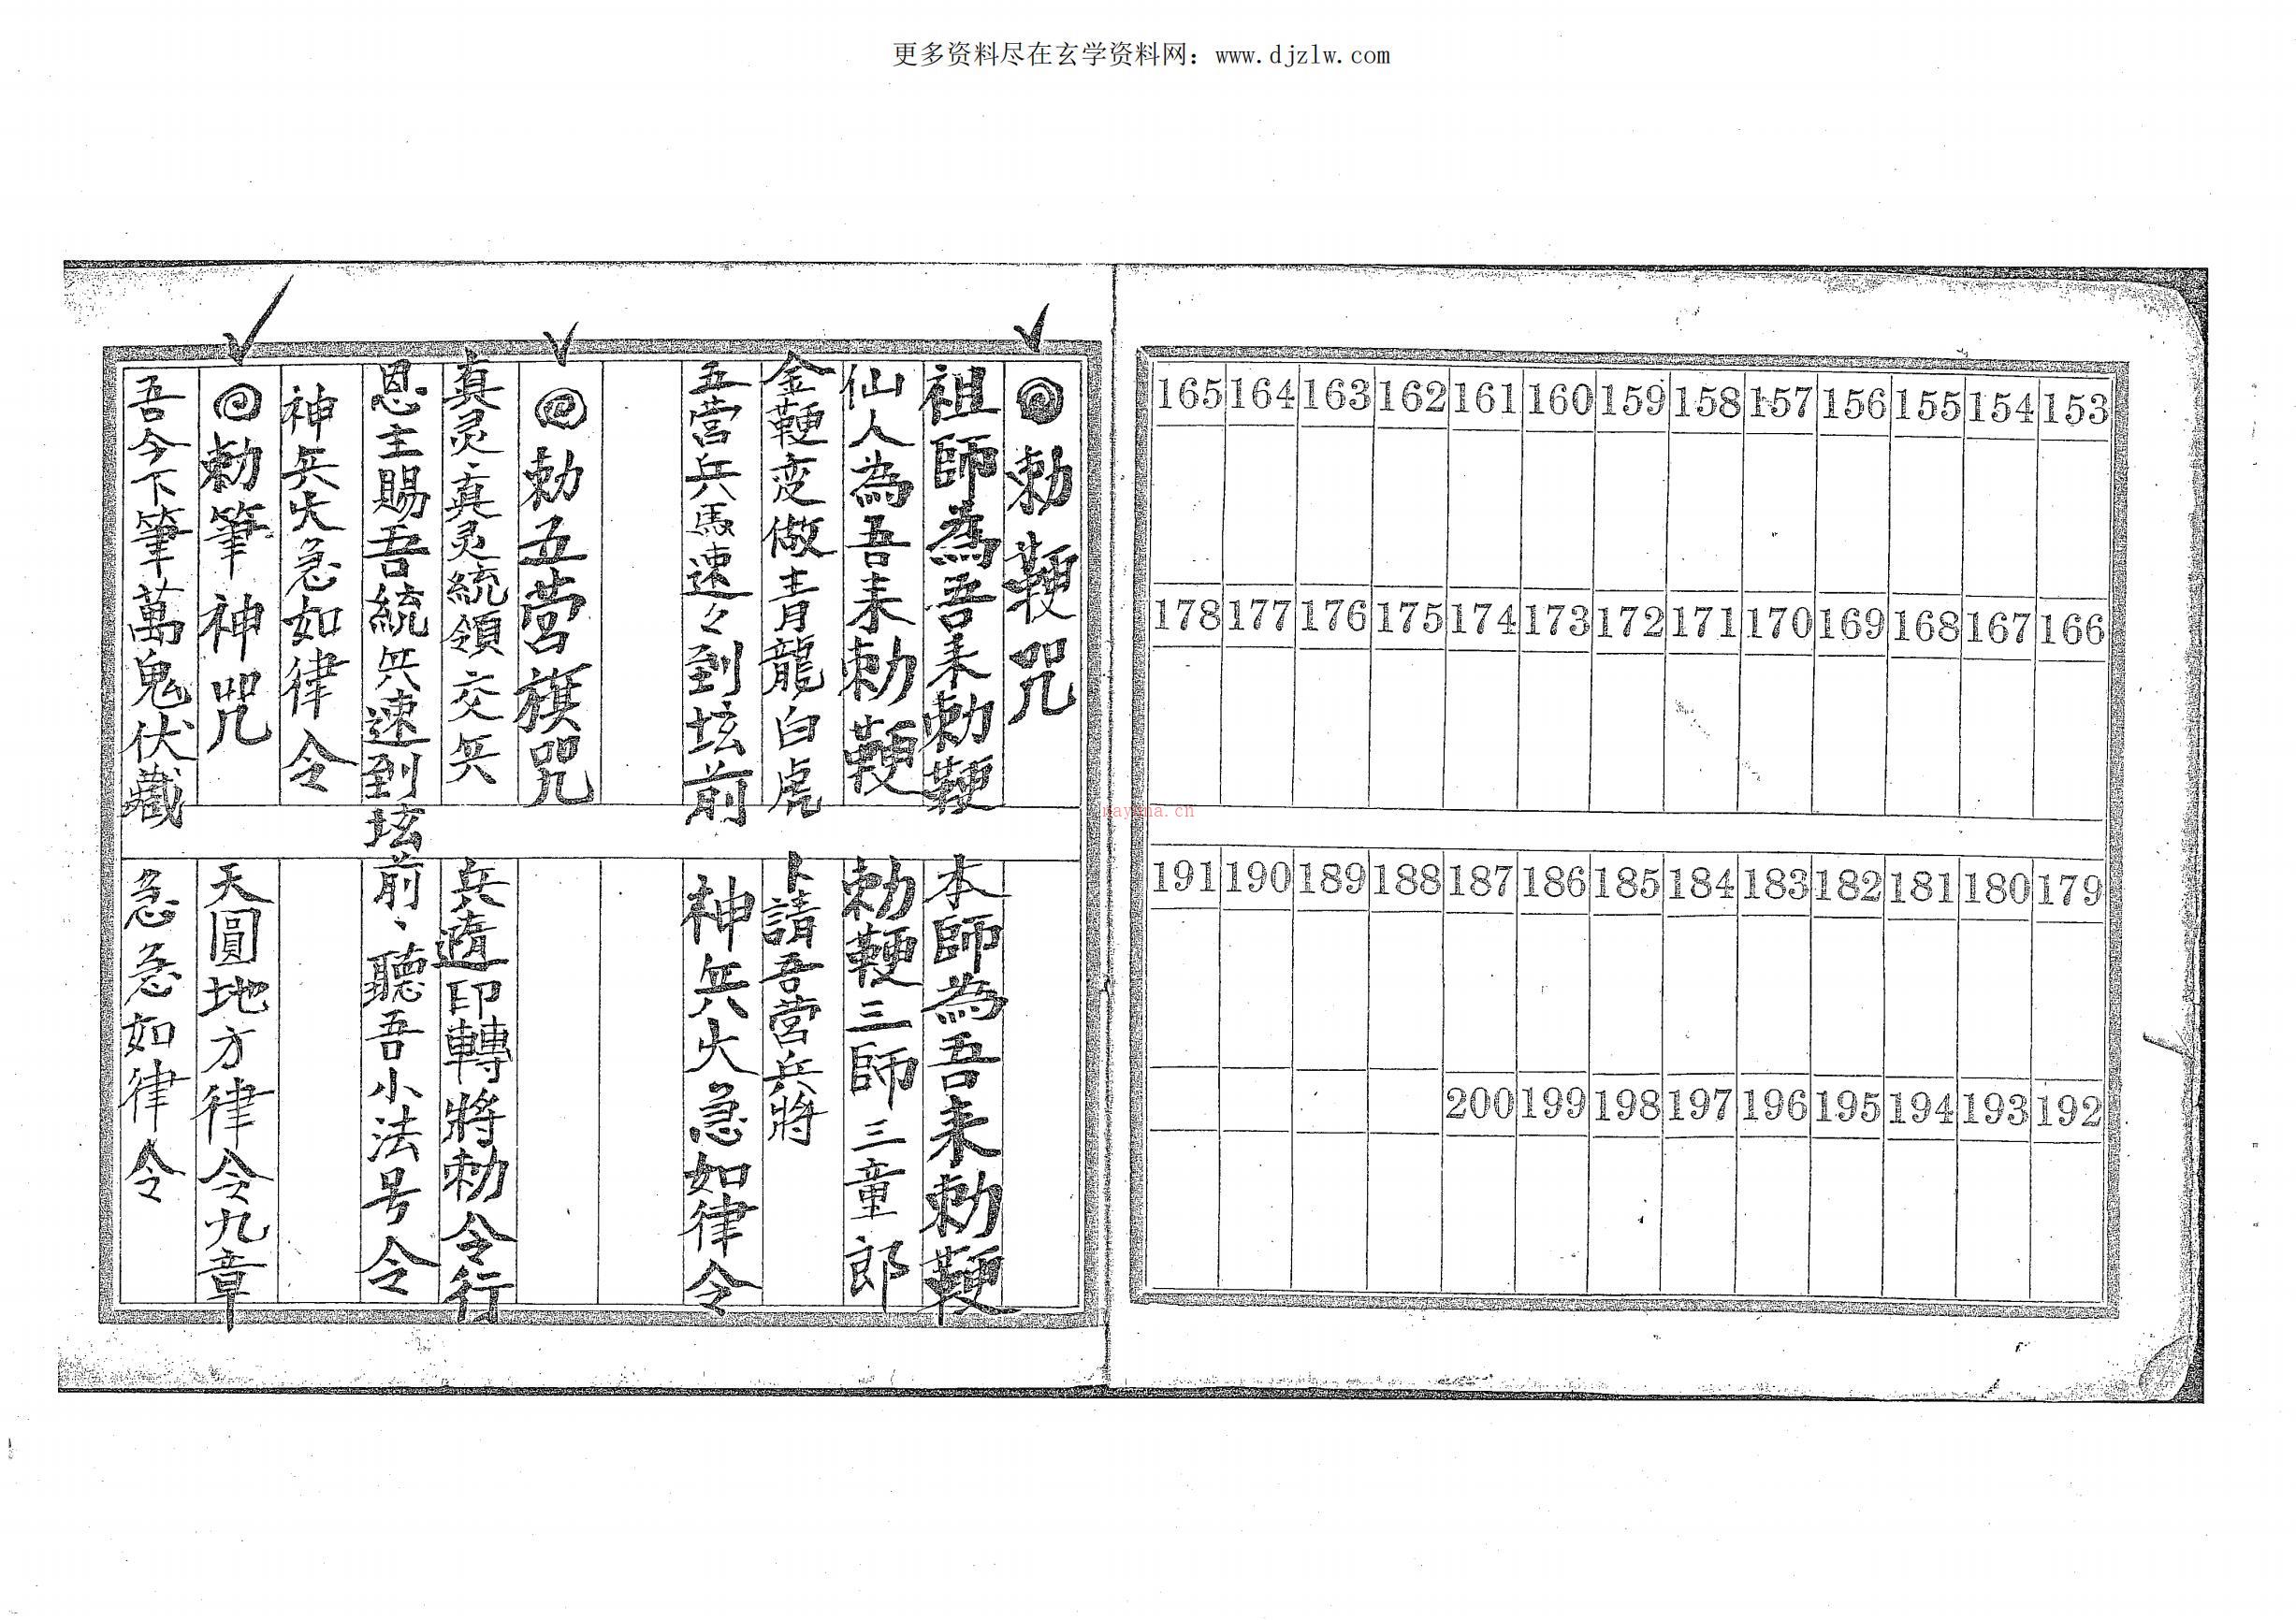 更多资料尽在玄学资料网：www.djzlw.com
165 164 163 162 161 160 159 158 157 156 155 154 153
178 177 176 175 174 173 172 171 170 169 168 167 166
191 190 189 188 187 186 185 184 183 182 181 180 179
200 199 198 197 196 195 194 193 192
勅鞭咒
祖師為吾来勅鞭 本師為吾来勅鞭
仙人為吾来勅鞭 勅鞭三師三童郎
金鞭变做青龍白虎 卜請吾营兵將
五营兵馬速々到坛前 神兵火急如律令
勅五营旗咒
真灵真灵統領交兵 兵隨印轉將勅令行
恩主賜吾統兵速到坛前、聽吾小法号令
神兵火急如律令
勅筆神咒 天圓地方律令九章
吾今下筆萬鬼伏藏 急急如律令